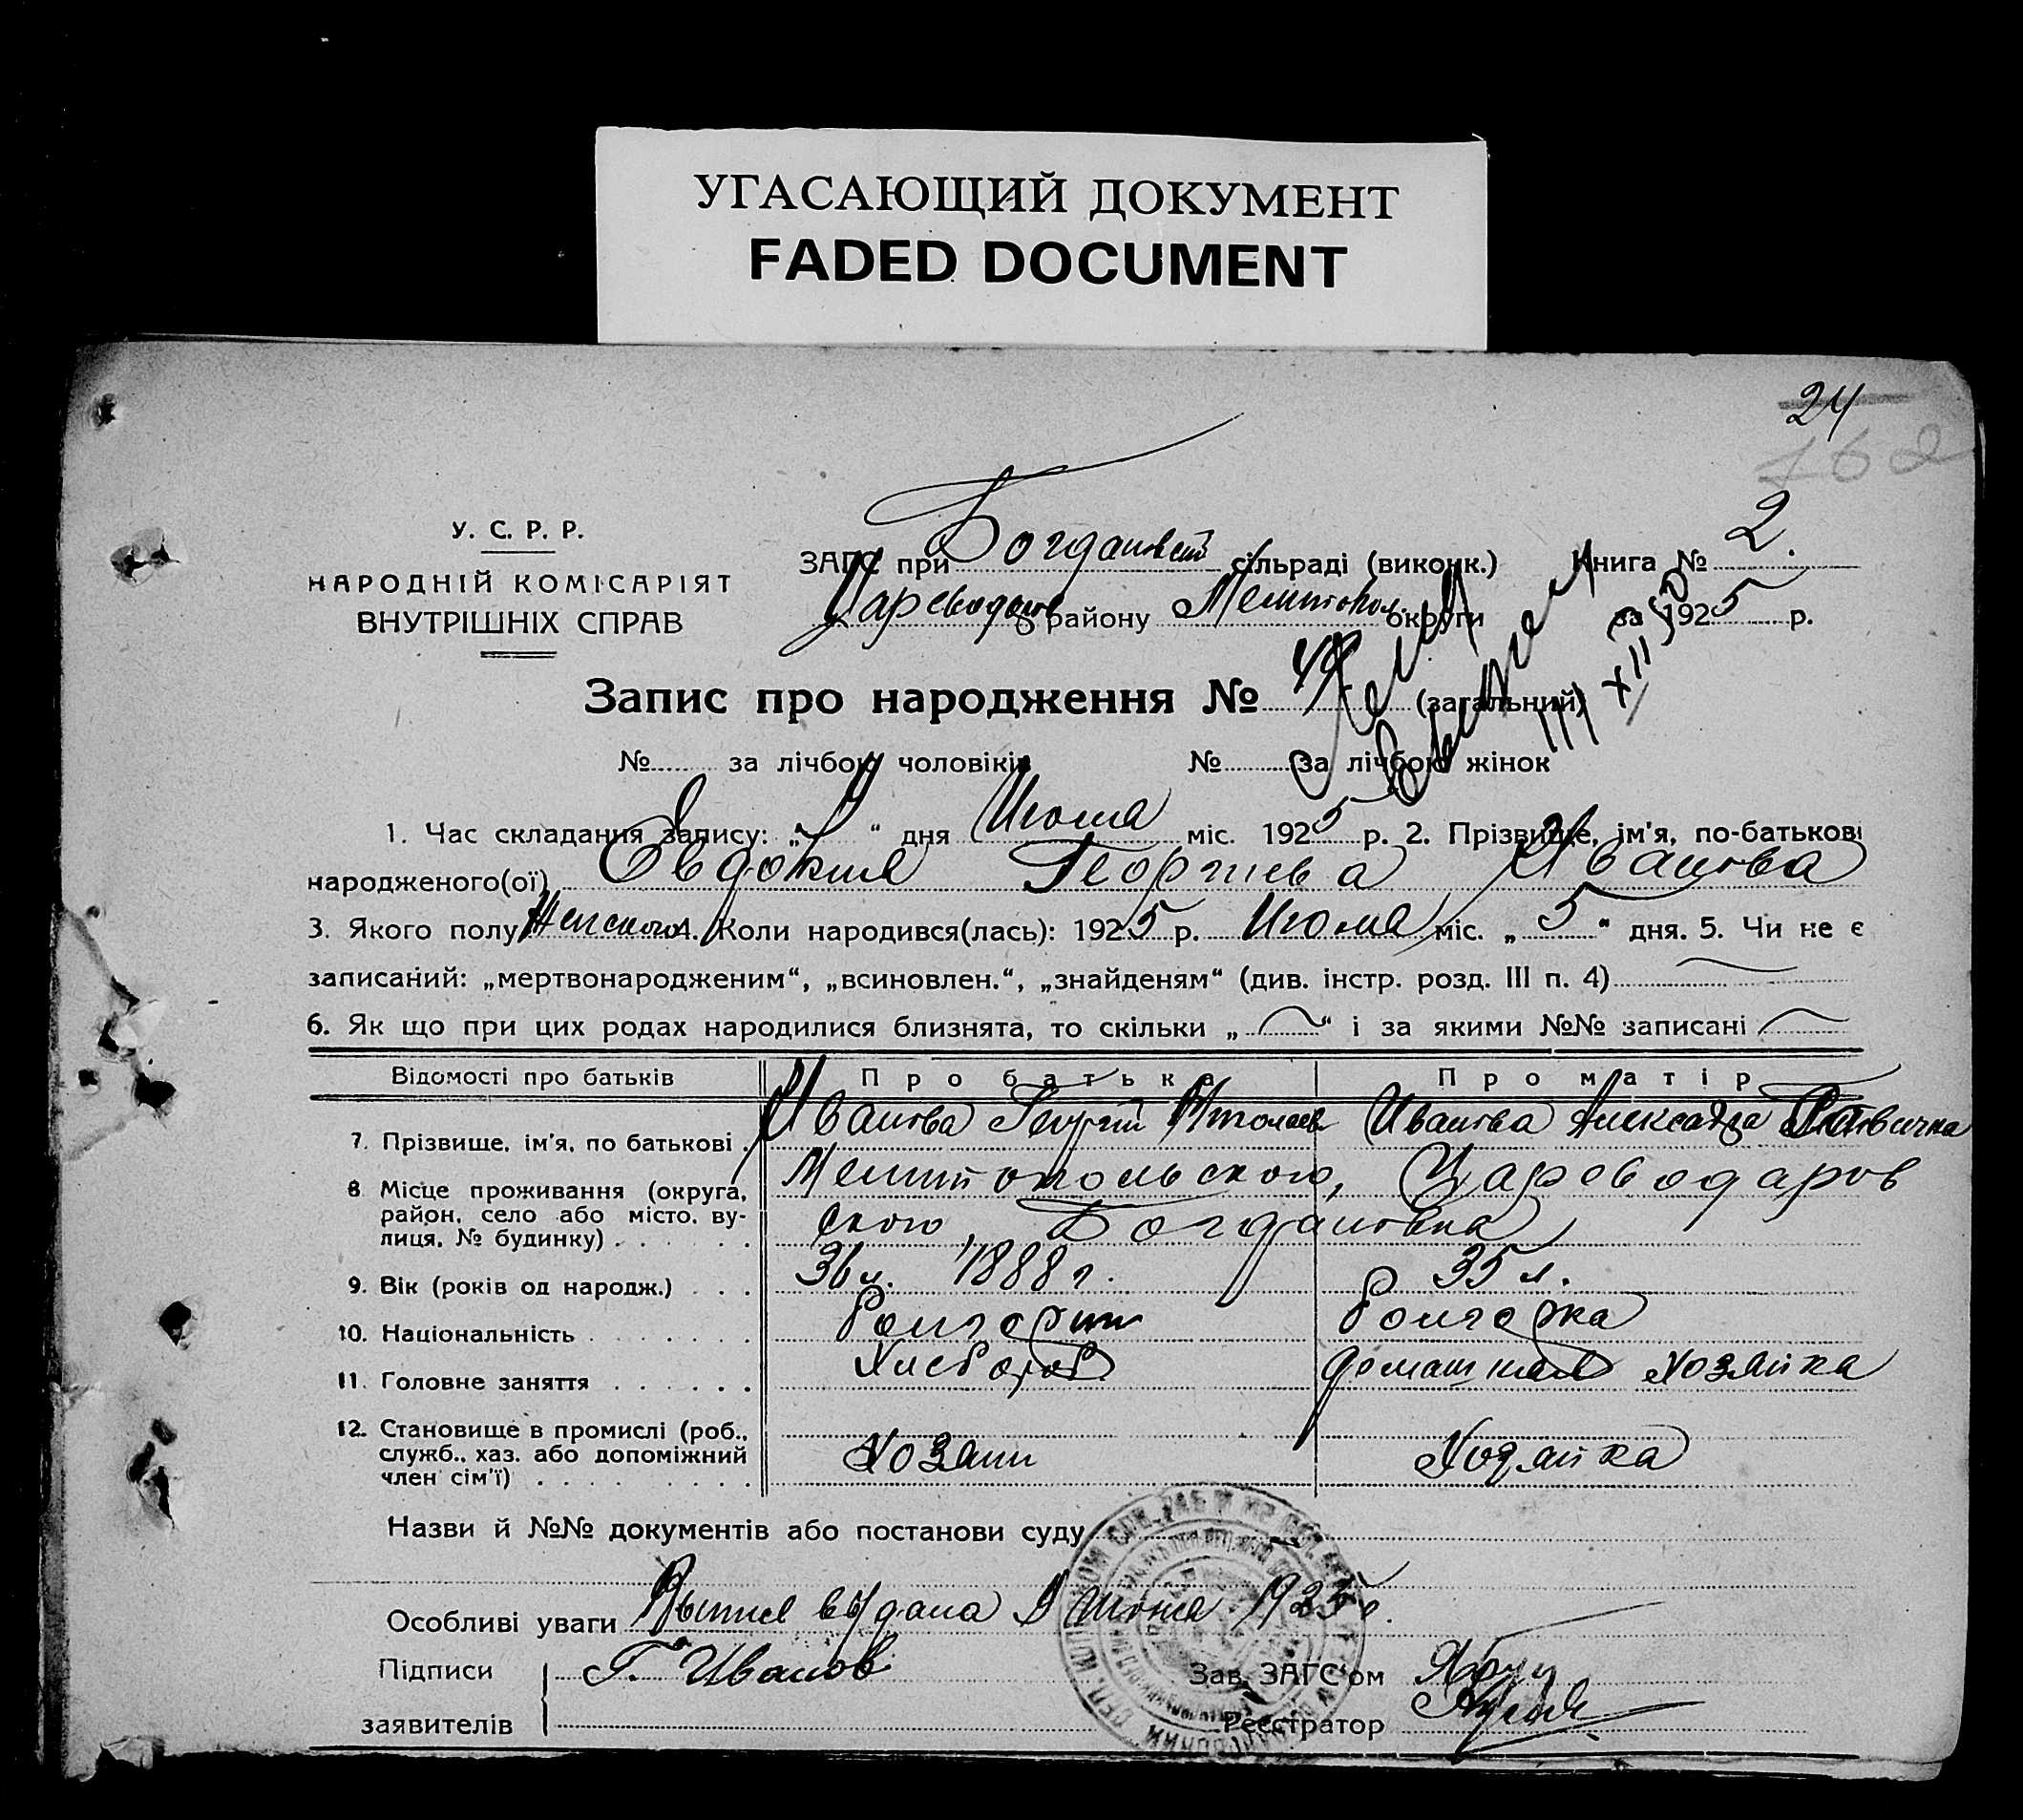 УГАСАЮЩИЙ ДОКУМЕНТ
FADED DOCUMENT
24
162
У. С. Р. Р.
НАРОДНІЙ КОМІСАРІЯТ
ВНУТРІШНІХ СПРАВ
ЗАГС при Богдановской сільраді (виконк.) Книга № 2.
району Мелитопол. округи за 1925 р.
Запис про народження № (загальний)
XII 50
№ за лічбою чоловіків № за лічбою жінок
1. Час складання запису: „ “ дня Июля міс. 1925 р. 2. Прізвище, ім'я, по-батькові
народженого(ої) Евдокия Георгиева Иванова
3. Якого полу Женского 4. Коли народився(лась): 1925 р. Июля міс. „ 5 “ дня. 5. Чи не є
записаний: „мертвонародженим“, „всиновлен.“, „знайденям“ (див. інстр. розд. III п. 4)
6. Як що при цих родах народилися близнята, то скільки „ “ і за якими №№ записані
Відомості про батьків Про батька Про матір
7. Прізвище, ім'я, по батькові Иванова Георгий Николаев Иванова Александра
8 Місце проживання (округа, район, село або місто, вулиця, № будинку) Мелитопольского, Цареводаров
ского, Богдановка
9. Вік (років од народж.) 36 л. 1888 г. 35 л.
10. Національність Болгарин Болгарка
11. Головне заняття Хлебороб домашняя хозяйка
12. Становище в промислі (роб., служб., хаз. або допоміжний член сім'ї) Хозяин Хозяйка
Назви й №№ документів або постанови суду
Особливі уваги выдана Июля 1925 г.
Підписи Г. Иванов Зав. ЗАГС'ом
заявителів Реєстратор